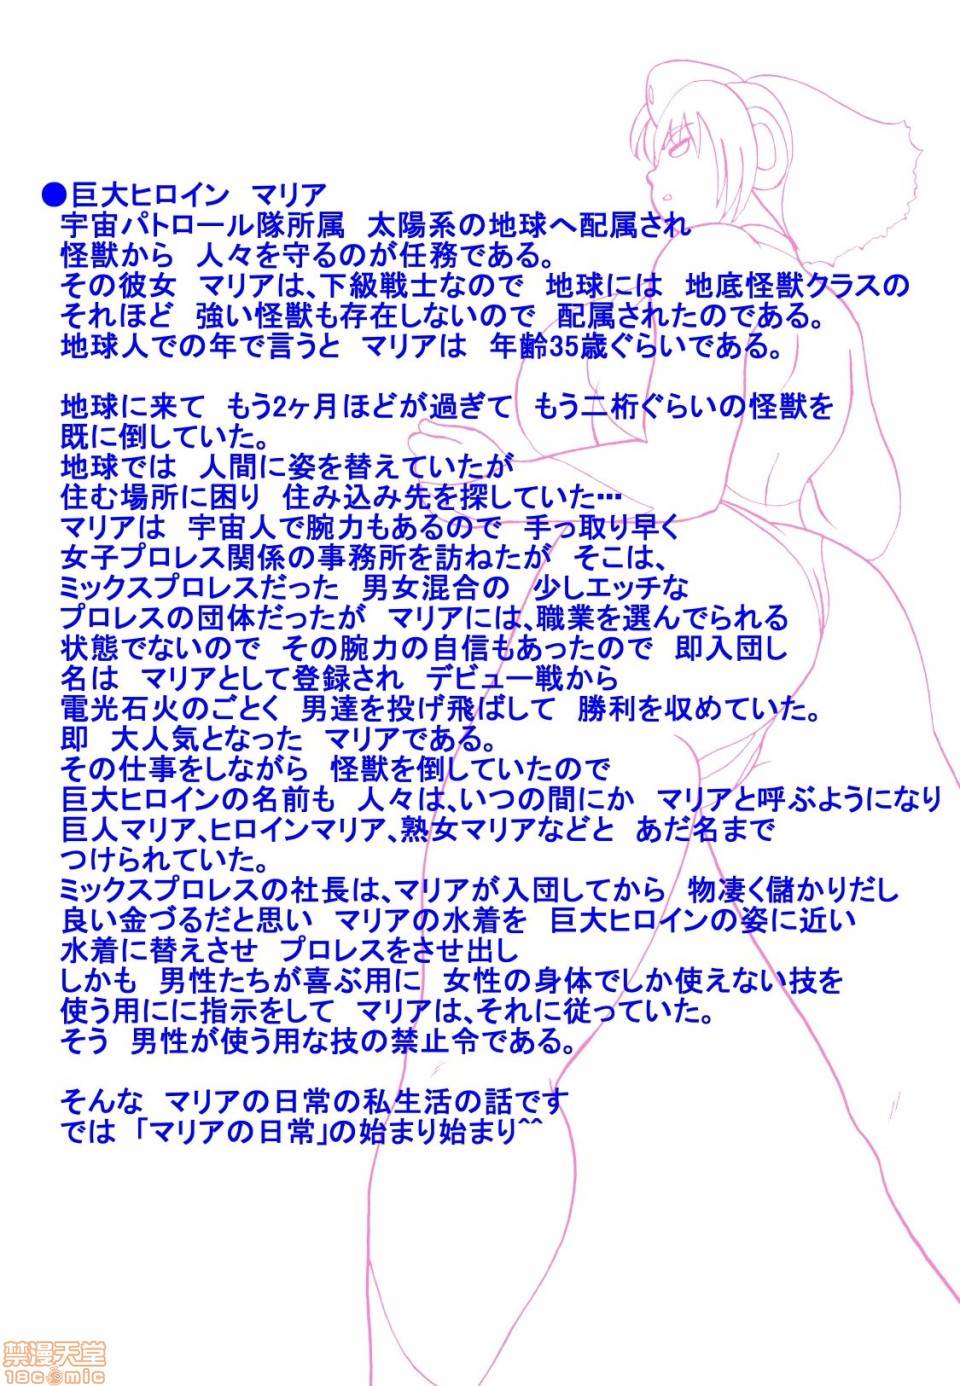 ●巨大ヒロイン　マリア
宇宙パトロール隊所属　太陽系の地球へ配属され
怪獣から　人々を守るのが任務である。
その彼女　マリアは、下級戦士なので　地球には　地底怪獣クラスの
それほど　強い怪獣も存在しないので　配属されたのである。
地球人での年で言うと　マリアは　年齢35歳ぐらいである。
地球に来て　もう2ヶ月ほどが過ぎて　もう二桁ぐらいの怪獣を
既に倒していた。
地球では　人間に姿を替えていたが
住む場所に困り　住み込み先を探していた…
マリアは　宇宙人で腕力もあるので　手っ取り早く
女子プロレス関係の事務所を訪ねたが　そこは、
ミックスプロレスだった　男女混合の　少しエッチな
プロレスの団体だったが　マリアには、職業を選んでられる
状態でないので　その腕力の自信もあったので　即入団し
名は　マリアとして登録され　デビュー戦から
電光石火のごとく　男達を投げ飛ばして　勝利を収めていた。
即　大人気となった　マリアである。
その仕事をしながら　怪獣を倒していたので
巨大ヒロインの名前も　人々は、いつの間にか　マリアと呼ぶようになり
巨人マリア、ヒロインマリア、熟女マリアなどと　あだ名まで
つけられていた。
ミックスプロレスの社長は、マリアが入団してから　物凄く儲かりだし
良い金づるだと思い　マリアの水着を　巨大ヒロインの姿に近い
水着に替えさせ　プロレスをさせ出し
しかも　男性たちが喜ぶ用に　女性の身体でしか使えない技を
使う用にに指示をして　マリアは、それに従っていた。
そう　男性が使う用な技の禁止令である。
そんな　マリアの日常の私生活の話です
では　「マリアの日常」の始まり始まり^^
禁漫天堂
18comic